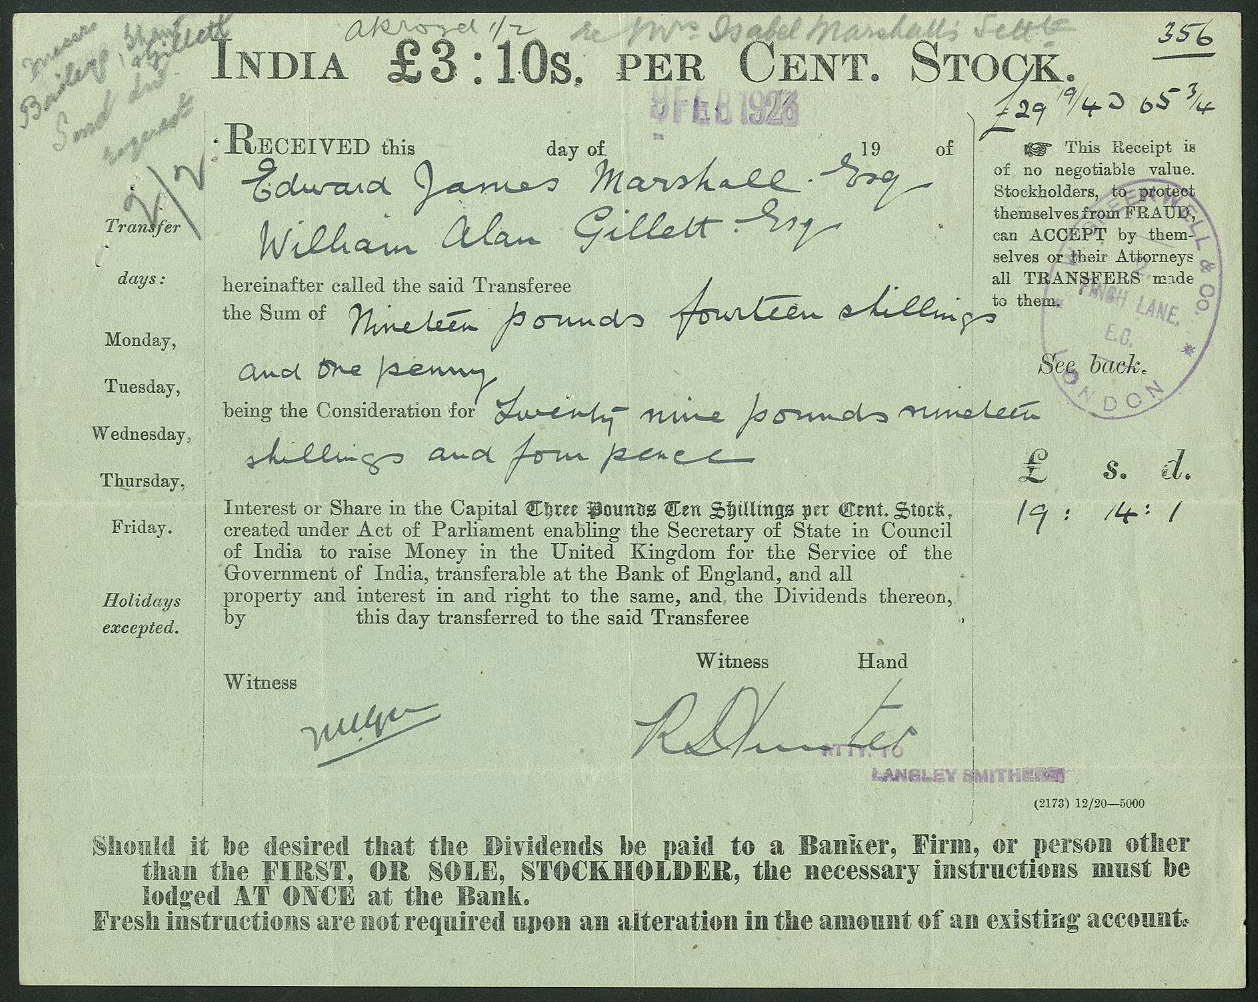 akroyd 1/2 re Mrs Isabel Marshall's Settt
Messrs
Gillett
Send div
request
2/2
356
INDIA £3:10s. PER CENT. STOCK.
FEB 1923
£29 19/4 @ 65 3/4
RECEIVED this day of 19 of
Edward James Marshall Esq
William Alan Gillett Esq
hereinafter called the said Transferee
the Sum of Nineteen pounds fourteen shillings
and one penny
being the Consideration for Twenty nine pounds nineteen
shillings and four pence
Interest or Share in the Capital Three Pounds Ten Shillings per Cent. Stock,
created under Act of Parliament enabling the Secretary of State in Council
of India to raise Money in the United Kingdom for the Service of the
Government of India, transferable at the Bank of England, and all
property and interest in and right to the same, and the Dividends thereon,
by this day transferred to the said Transferee
Witness Hand
Witness
R D Hunter
ATTY. TO
LANGLEY SMITHERS
Transfer
days:
Monday,
Tuesday,
Wednesday,
Thursday,
Friday.
Holidays
excepted.
☞ This Receipt is
of no negotiable value.
Stockholders, to protect
themselves from FRAUD,
can ACCEPT by them-
selves or their Attorneys
all TRANSFERS made
to them.
See back.
& CO.
2,
FINCH LANE,
E.C.
LONDON
£ s. d.
19 : 14 : 1
(2173) 12/20—5000
Should it be desired that the Dividends be paid to a Banker, Firm, or person other
than the FIRST, OR SOLE, STOCKHOLDER, the necessary instructions must be
lodged AT ONCE at the Bank.
Fresh instructions are not required upon an alteration in the amount of an existing account.